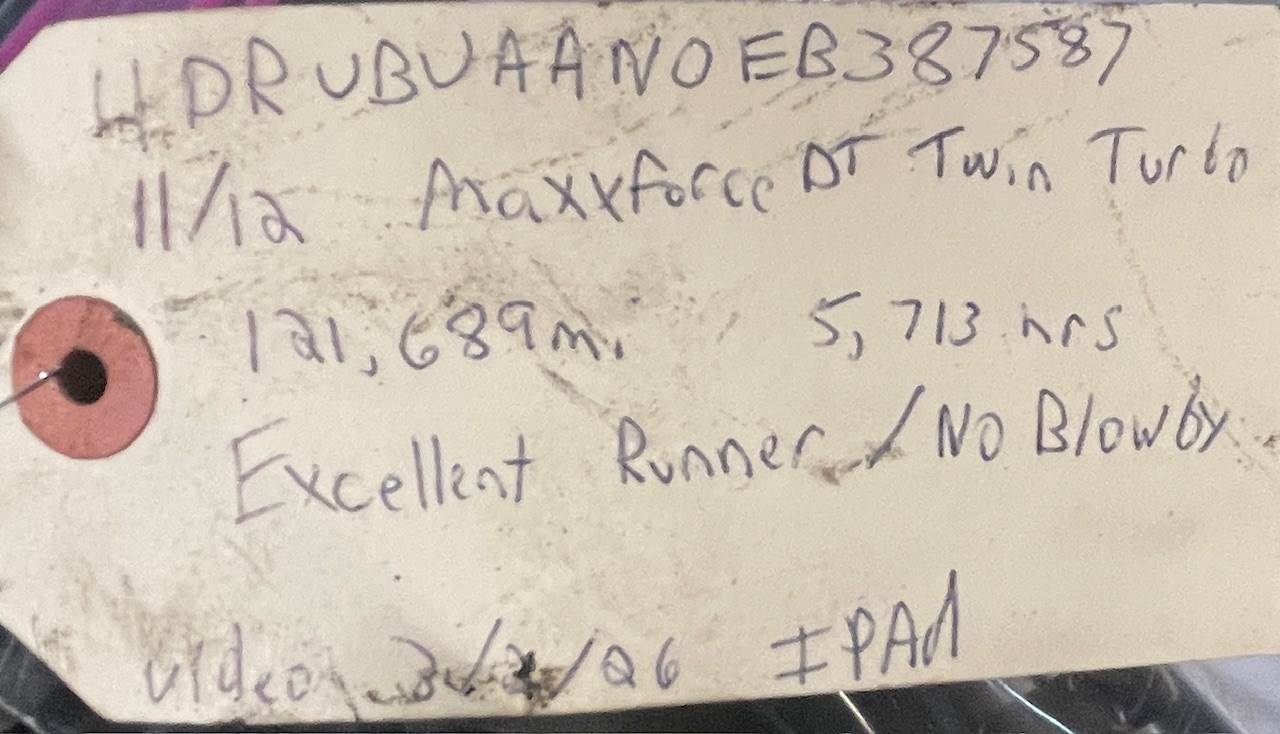 4DRUBUAAN0EB387587
11/12 Maxxforce DT Twin Turbo
121,689mi 5,713 hrs
Excellent Runner / No Blowby
video 3/ /26 IPAd